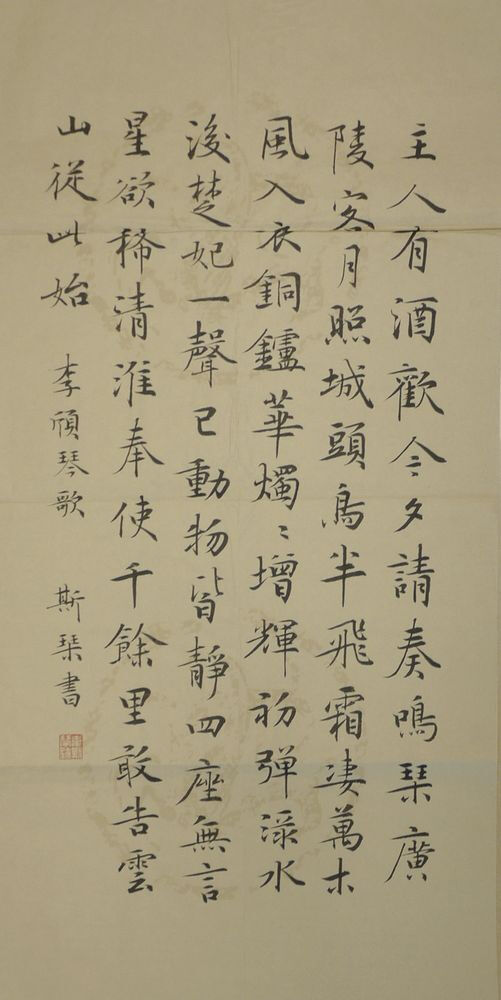 主人有酒歡今夕請奏鳴琹廣
陵客月照城頭烏半飛霜淒萬木
風入衣銅鑪華燭〻增輝初彈渌水
後楚妃一聲已動物皆靜四座無言
星欲稀清淮奉使千餘里敢告雲
山從此始 李頎琴歌 斯琹書